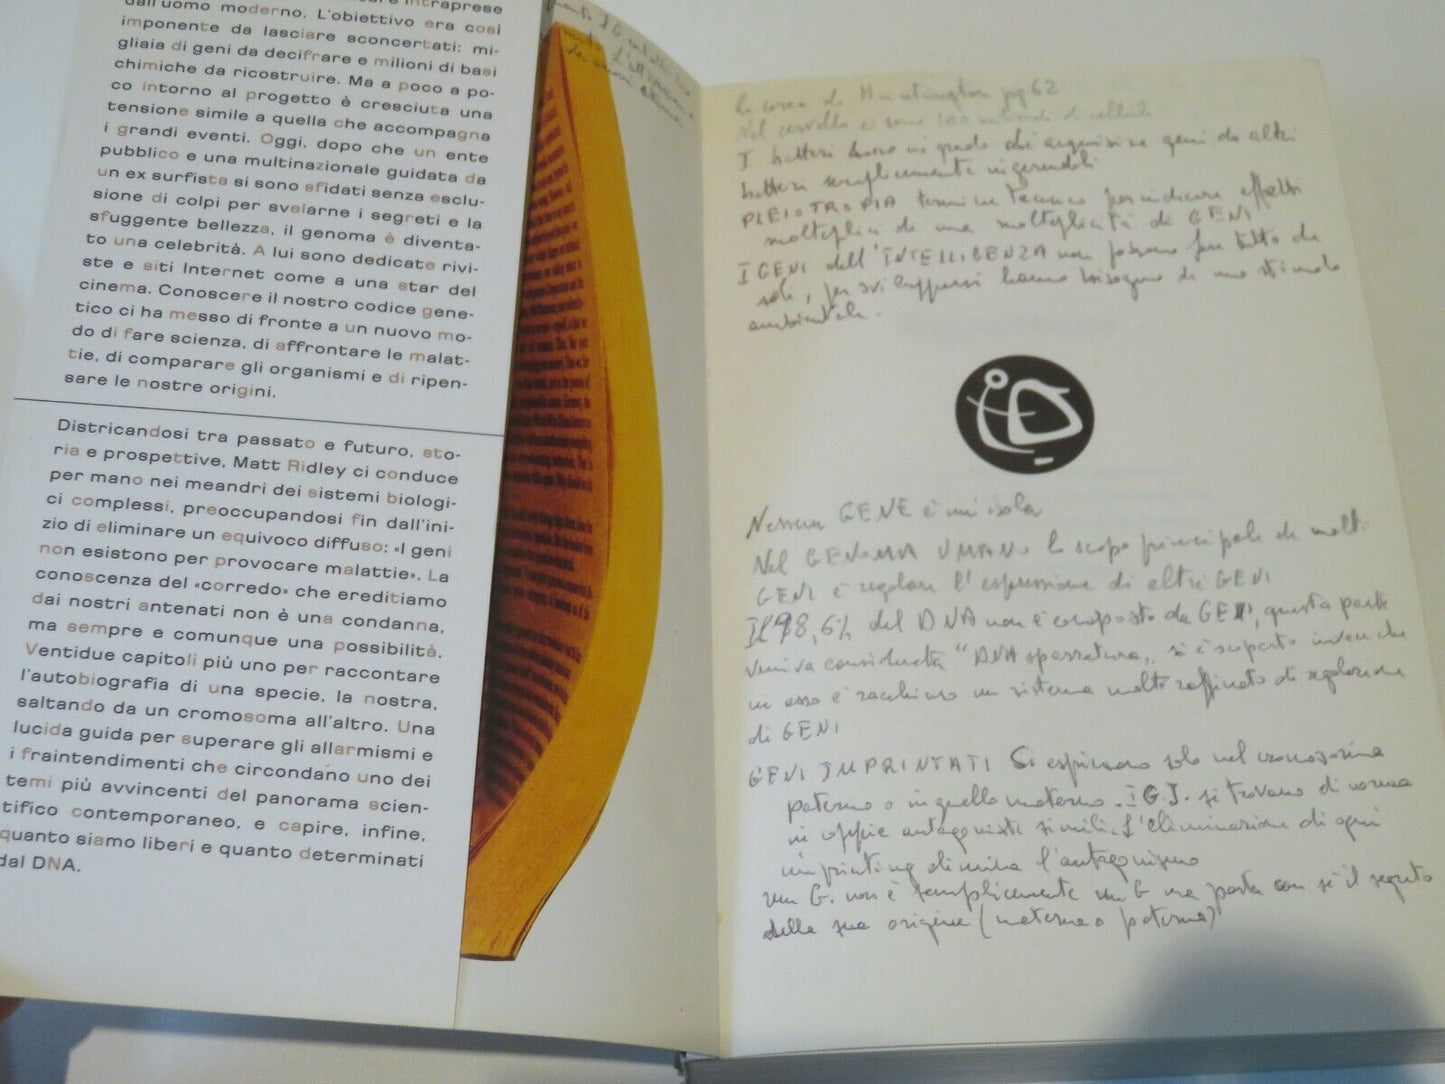 dall'uomo moderno. L'obiettivo era così
imponente da lasciare sconcertati: mi-
gliaia di geni da decifrare e milioni di basi
chimiche da ricostruire. Ma a poco a po-
co intorno al progetto è cresciuta una
tensione simile a quella che accompagna
i grandi eventi. Oggi, dopo che un ente
pubblico e una multinazionale guidata da
un ex surfista si sono sfidati senza esclu-
sione di colpi per svelarne i segreti e la
sfuggente bellezza, il genoma è diventa-
to una celebrità. A lui sono dedicate rivi-
ste e siti Internet come a una star del
cinema. Conoscere il nostro codice gene-
tico ci ha messo di fronte a un nuovo mo-
do di fare scienza, di affrontare le malat-
tie, di comparare gli organismi e di ripen-
sare le nostre origini.
Districandosi tra passato e futuro, sto-
ria e prospettive, Matt Ridley ci conduce
per mano nei meandri dei sistemi biologi-
ci complessi, preoccupandosi fin dall'ini-
zio di eliminare un equivoco diffuso: «I geni
non esistono per provocare malattie». La
conoscenza del «corredo» che ereditiamo
dai nostri antenati non è una condanna,
ma sempre e comunque una possibilità.
Ventidue capitoli più uno per raccontare
l'autobiografia di una specie, la nostra,
saltando da un cromosoma all'altro. Una
lucida guida per superare gli allarmismi e
i fraintendimenti che circondano uno dei
temi più avvincenti del panorama scien-
tifico contemporaneo, e capire, infine,
quanto siamo liberi e quanto determinati
dal DNA.
La corea di Huntington pg 62
Nel cervello ci sono 100 miliardi di cellule
I batteri sono in grado di acquisire geni da altri
batteri semplicemente ingerendoli
PLEIOTROPIA termine tecnico per indicare effetti
molteplici di una molteplicità di GENI
I GENI dell'INTELLIGENZA non possono fare tutto da
soli, per svilupparsi hanno bisogno di uno stimolo
ambientale.
Nessun GENE è un'isola
Nel GENOMA UMANO lo scopo principale di molti
GENI è regolare l'espressione di altri GENI
Il 98,6% del DNA non è composto da GENI, questa parte
veniva considerata "DNA spazzatura", si è scoperto invece che
in esso è racchiuso un sistema molto raffinato di regolazione
di GENI
GENI IMPRINTATI Si esprimono solo nel cromosoma
paterno o in quello materno. I G.I. si trovano di norma
in coppie antagoniste simili. L'eliminazione di ogni
imprinting elimina l'antagonismo
un G. non è semplicemente un G ma porta con sé il segreto
della sua origine (materna o paterna)